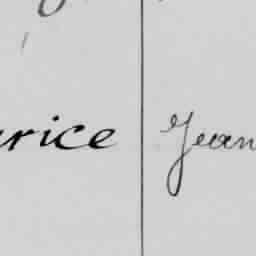 urice Jean